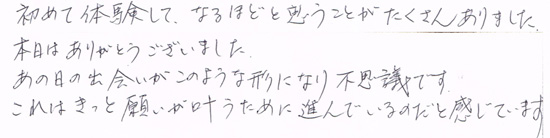 初めて体験して、なるほどと思うことがたくさんありました。
本日はありがとうございました。
あの日の出会いがこのような形になり不思議です。
これはきっと願いが叶うために進んでいるのだと感じています